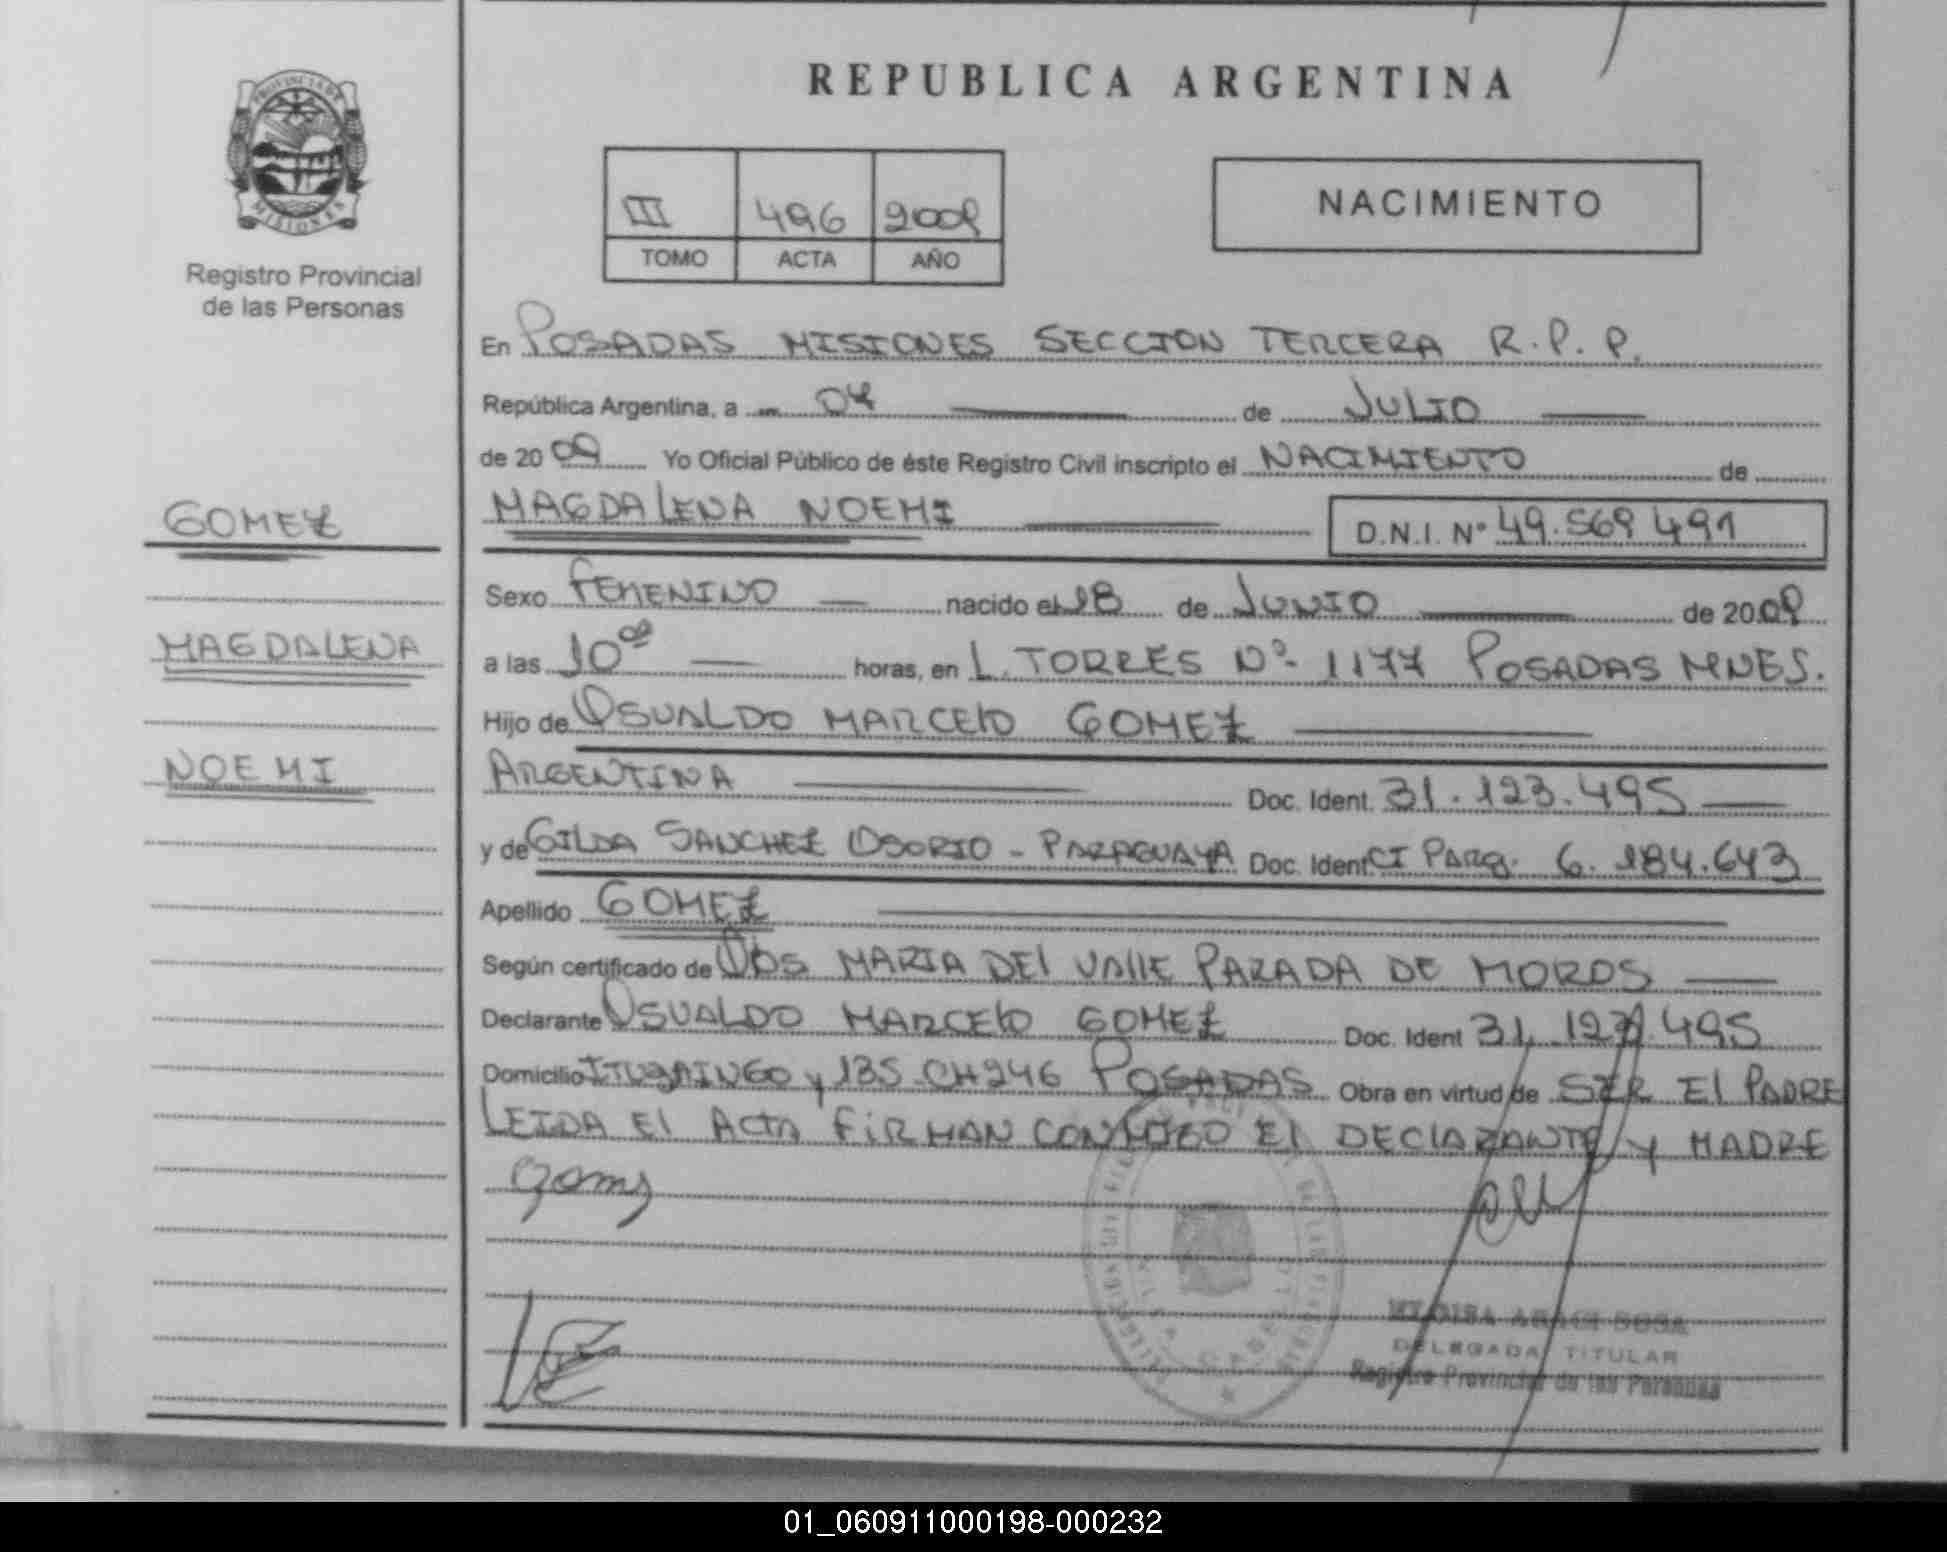 REPUBLICA ARGENTINA
PROVINCIA DE
MISIONES
Registro Provincial
de las Personas
III 496 2009
TOMO ACTA AÑO
NACIMIENTO
En POSADAS MISIONES SECCION TERCERA R.P.P.
República Argentina, a 04 de JULIO
de 2009 Yo Oficial Público de éste Registro Civil inscripto el NACIMIENTO de
GOMEZ
MAGDALENA NOEMI D.N.I. Nº 49.569 491
MAGDALENA
NOEMI
Sexo FEMENINO nacido el 18 de JUNIO de 2009
a las 10 00 horas, en L. TORRES Nº 1177 POSADAS MNES.
Hijo de OSVALDO MARCELO GOMEZ
ARGENTINA Doc. Ident. 31.123.495
y de GILDA SANCHEZ OSORIO - PARAGUAYA Doc. Ident. CI PARG. 6.184.643
Apellido GOMEZ
Según certificado de OBS MARIA DEL VALLE PARADA DE MOROS
Declarante OSVALDO MARCELO GOMEZ Doc. Ident 31.123.495
Domicilio ITUZAINGO y 135 CH246 POSADAS Obra en virtud de SER EL PADRE
LEIDA EL ACTA FIRMAN CONMIGO EL DECLARANTE Y MADRE
DELEGADA TITULAR
Registro Provincial de las Personas
01_060911000198-000232